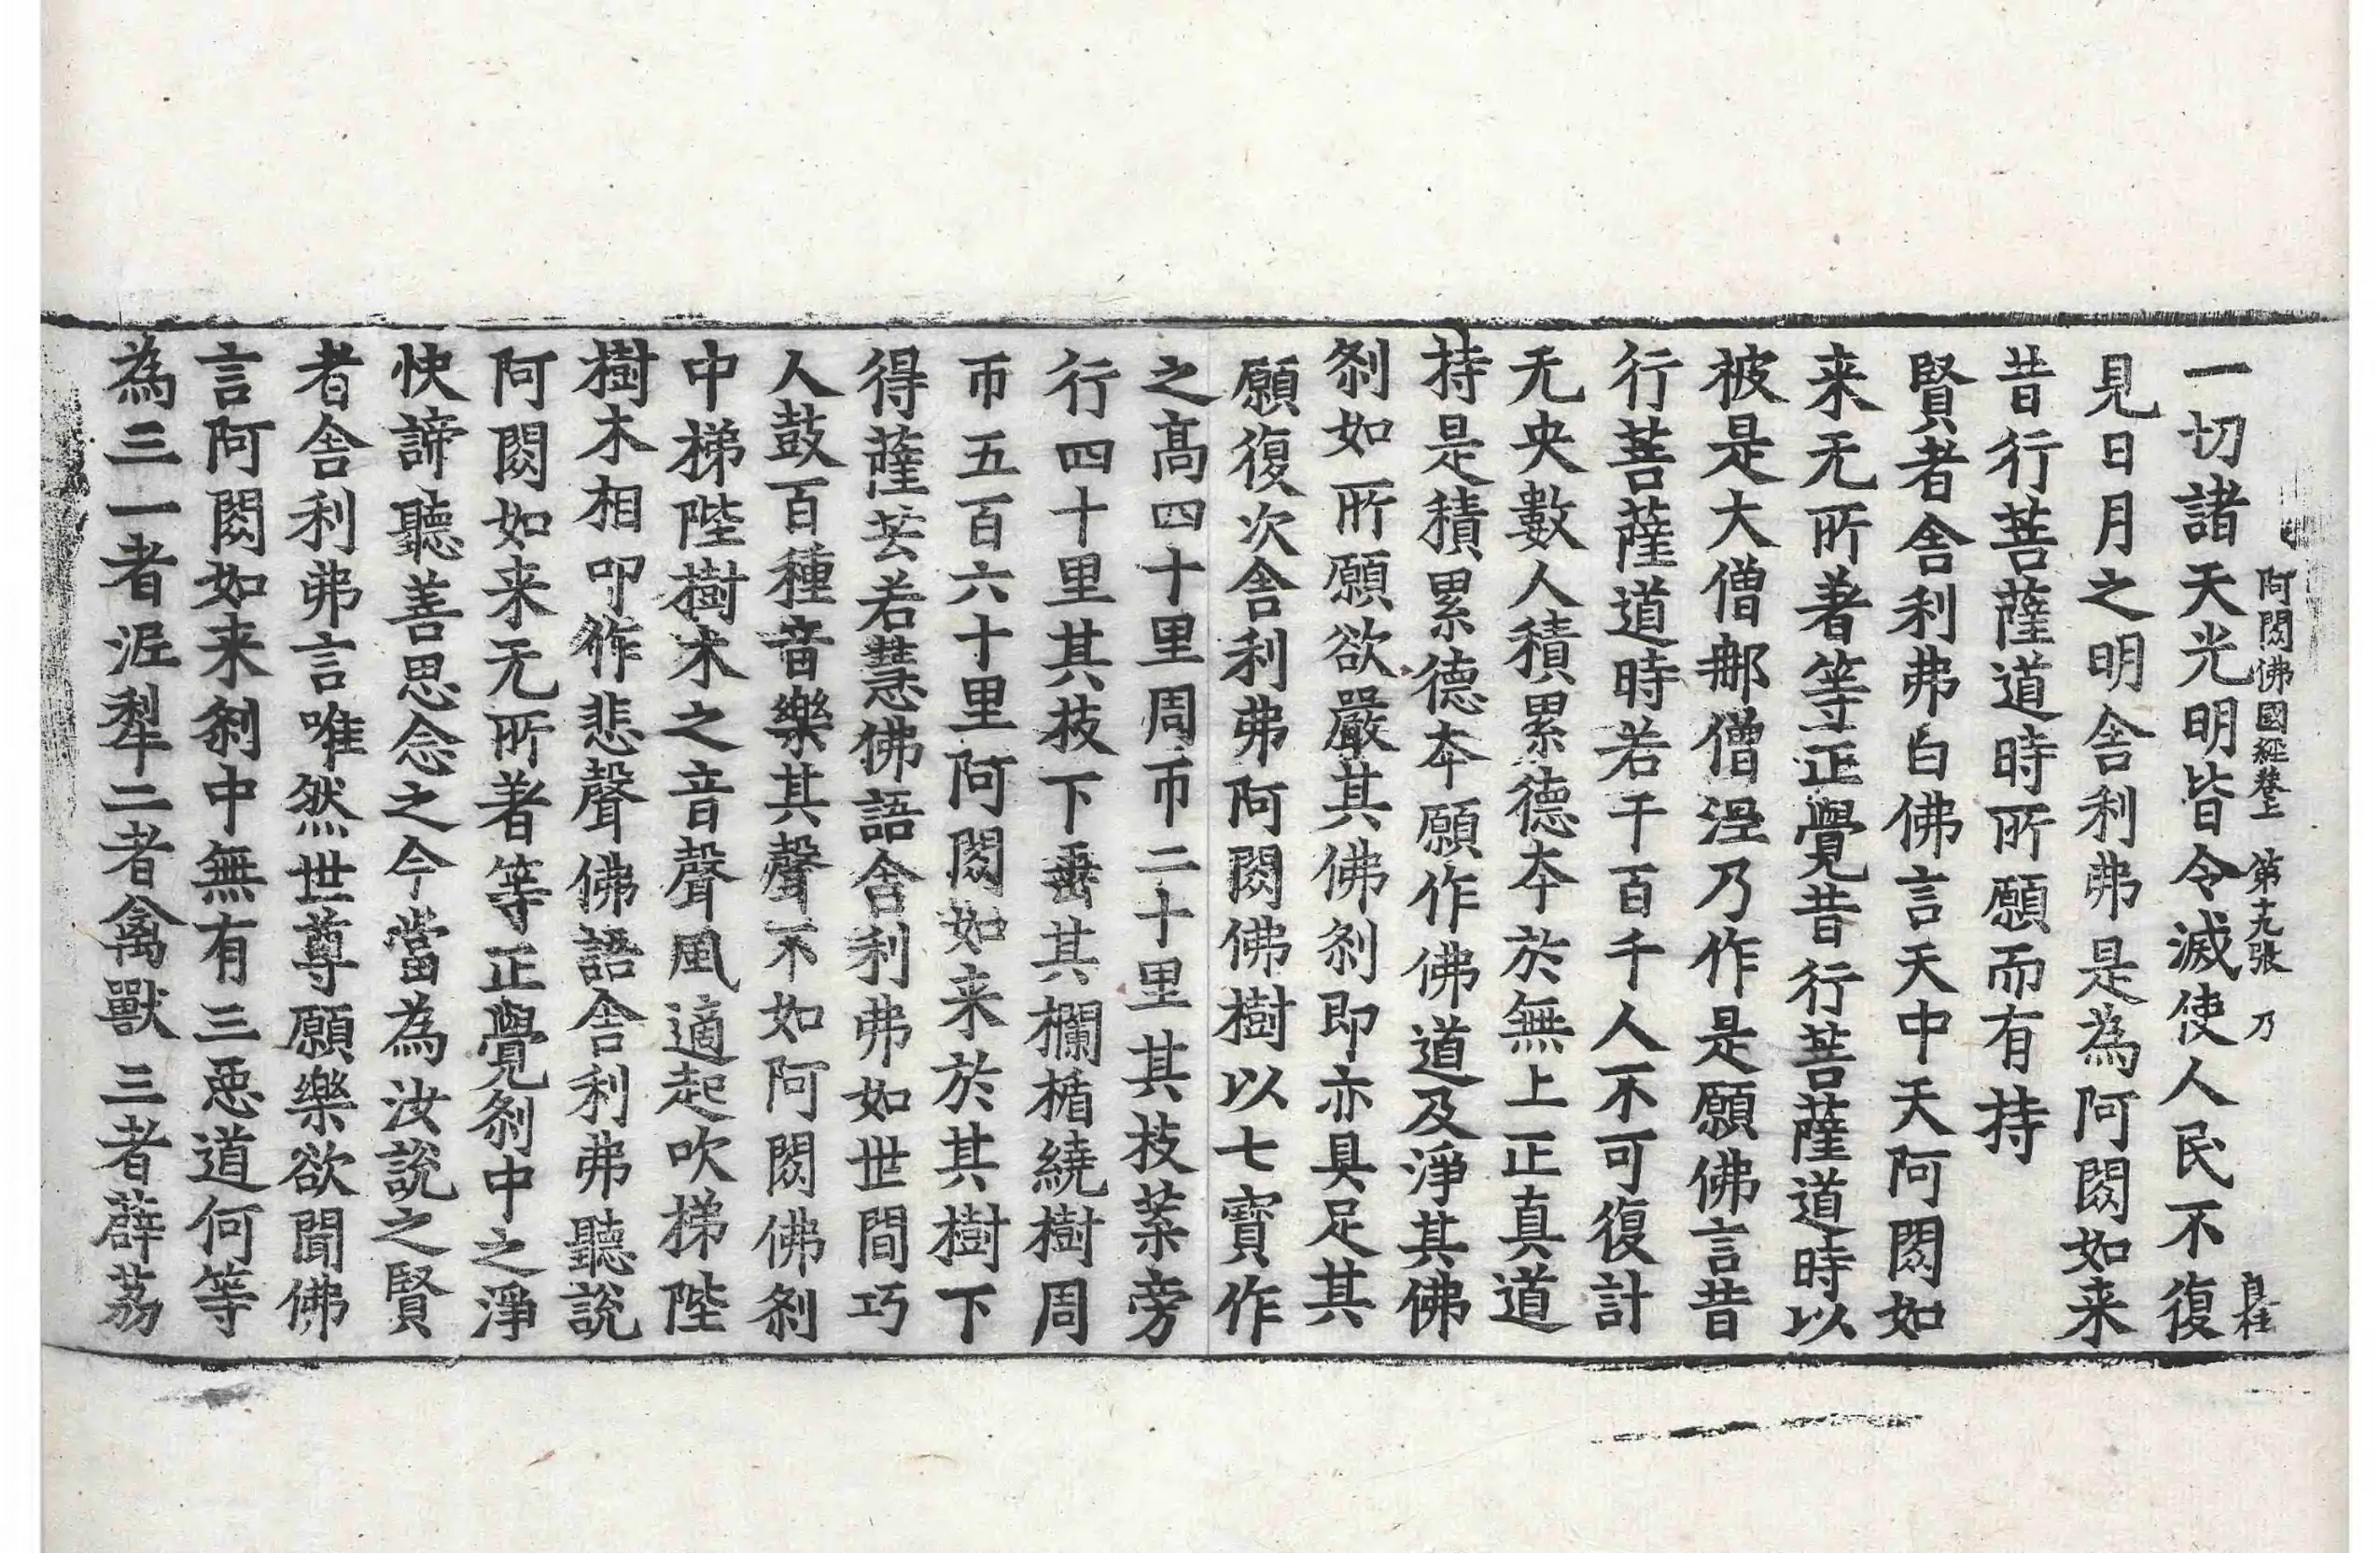 阿閦佛國經卷上　第十九張　乃
良桂
一切諸天光明皆令滅使人民不復
見日月之明舎利弗是為阿閦如来
昔行菩薩道時所願而有持
賢者舎利弗白佛言天中天阿閦如
来无所著等正覺昔行菩薩道時以
被是大僧那僧涅乃作是願佛言昔
行菩薩道時若干百千人不可復計
无央數人積累德夲於無上正真道
持是積累德夲願作佛道及淨其佛
刹如所願欲嚴其佛刹即亦具足其
願復次舎利弗阿閦佛樹以七寶作
之髙四十里周帀二十里其枝葉旁
行四十里其枝下垂其欄楯繞樹周
帀五百六十里阿閦如来於其樹下
得薩芸若慧佛語舎利弗如世間巧
人鼓百種音樂其聲不如阿閦佛刹
中梯陛樹木之音聲風適起吹梯陛
樹木相叩作悲聲佛語舎利弗聽說
阿閦如来无所著等正覺刹中之淨
快諦聽善思念之今當為汝說之賢
者舎利弗言唯然世尊願樂欲聞佛
言阿閦如来刹中無有三惡道何等
為三一者泥犁二者禽獸三者薜荔